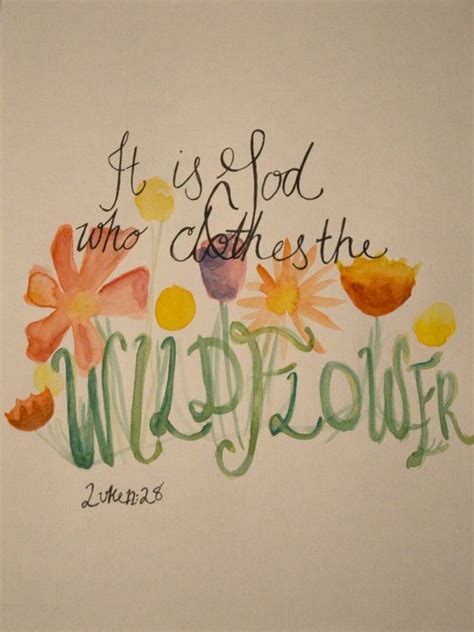 It is God
who clothes the
WILDFLOWER
Luke 12:28